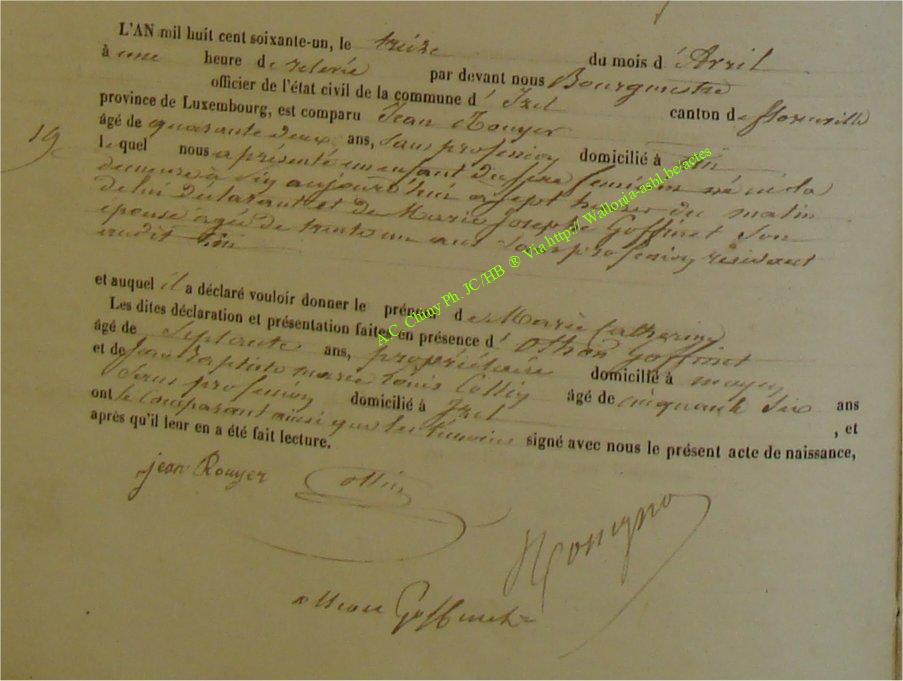 L'AN mil huit cent soixante-un, le treize du mois d'Avril
à une heure de relevée par devant nous Bourgmestre
officier de l'état civil de la commune d'Izel canton de Florenville
province de Luxembourg, est comparu Jean Rouyer
âgé de quarante deux ans, sans profession domicilié à
19
lequel nous a présenté un enfant du sexe féminin né en la
demeure à aujourd'hui à sept heures du matin
de lui déclarant et de Marie Josephe Goffinet son
épouse agée de trente un ans sans profession résidant
audit
et auquel il a déclaré vouloir donner le prénom de Marie Catherine
Les dites déclaration et présentation faites en présence d'Othon Goffinet
âgé de septante ans, propriétaire domicilié à moyen
et de Jean Baptiste marie louis Collin âgé de cinquante six ans
sans profession domicilié à Izel , et
ont le comparant ainsi que les témoins signé avec nous le présent acte de naissance,
après qu'il leur en a été fait lecture.
jean Rouyer
Goffinet
A.C. Chiny Ph. JC/HB ® Via http:// Wallonia-asbl.be/actes